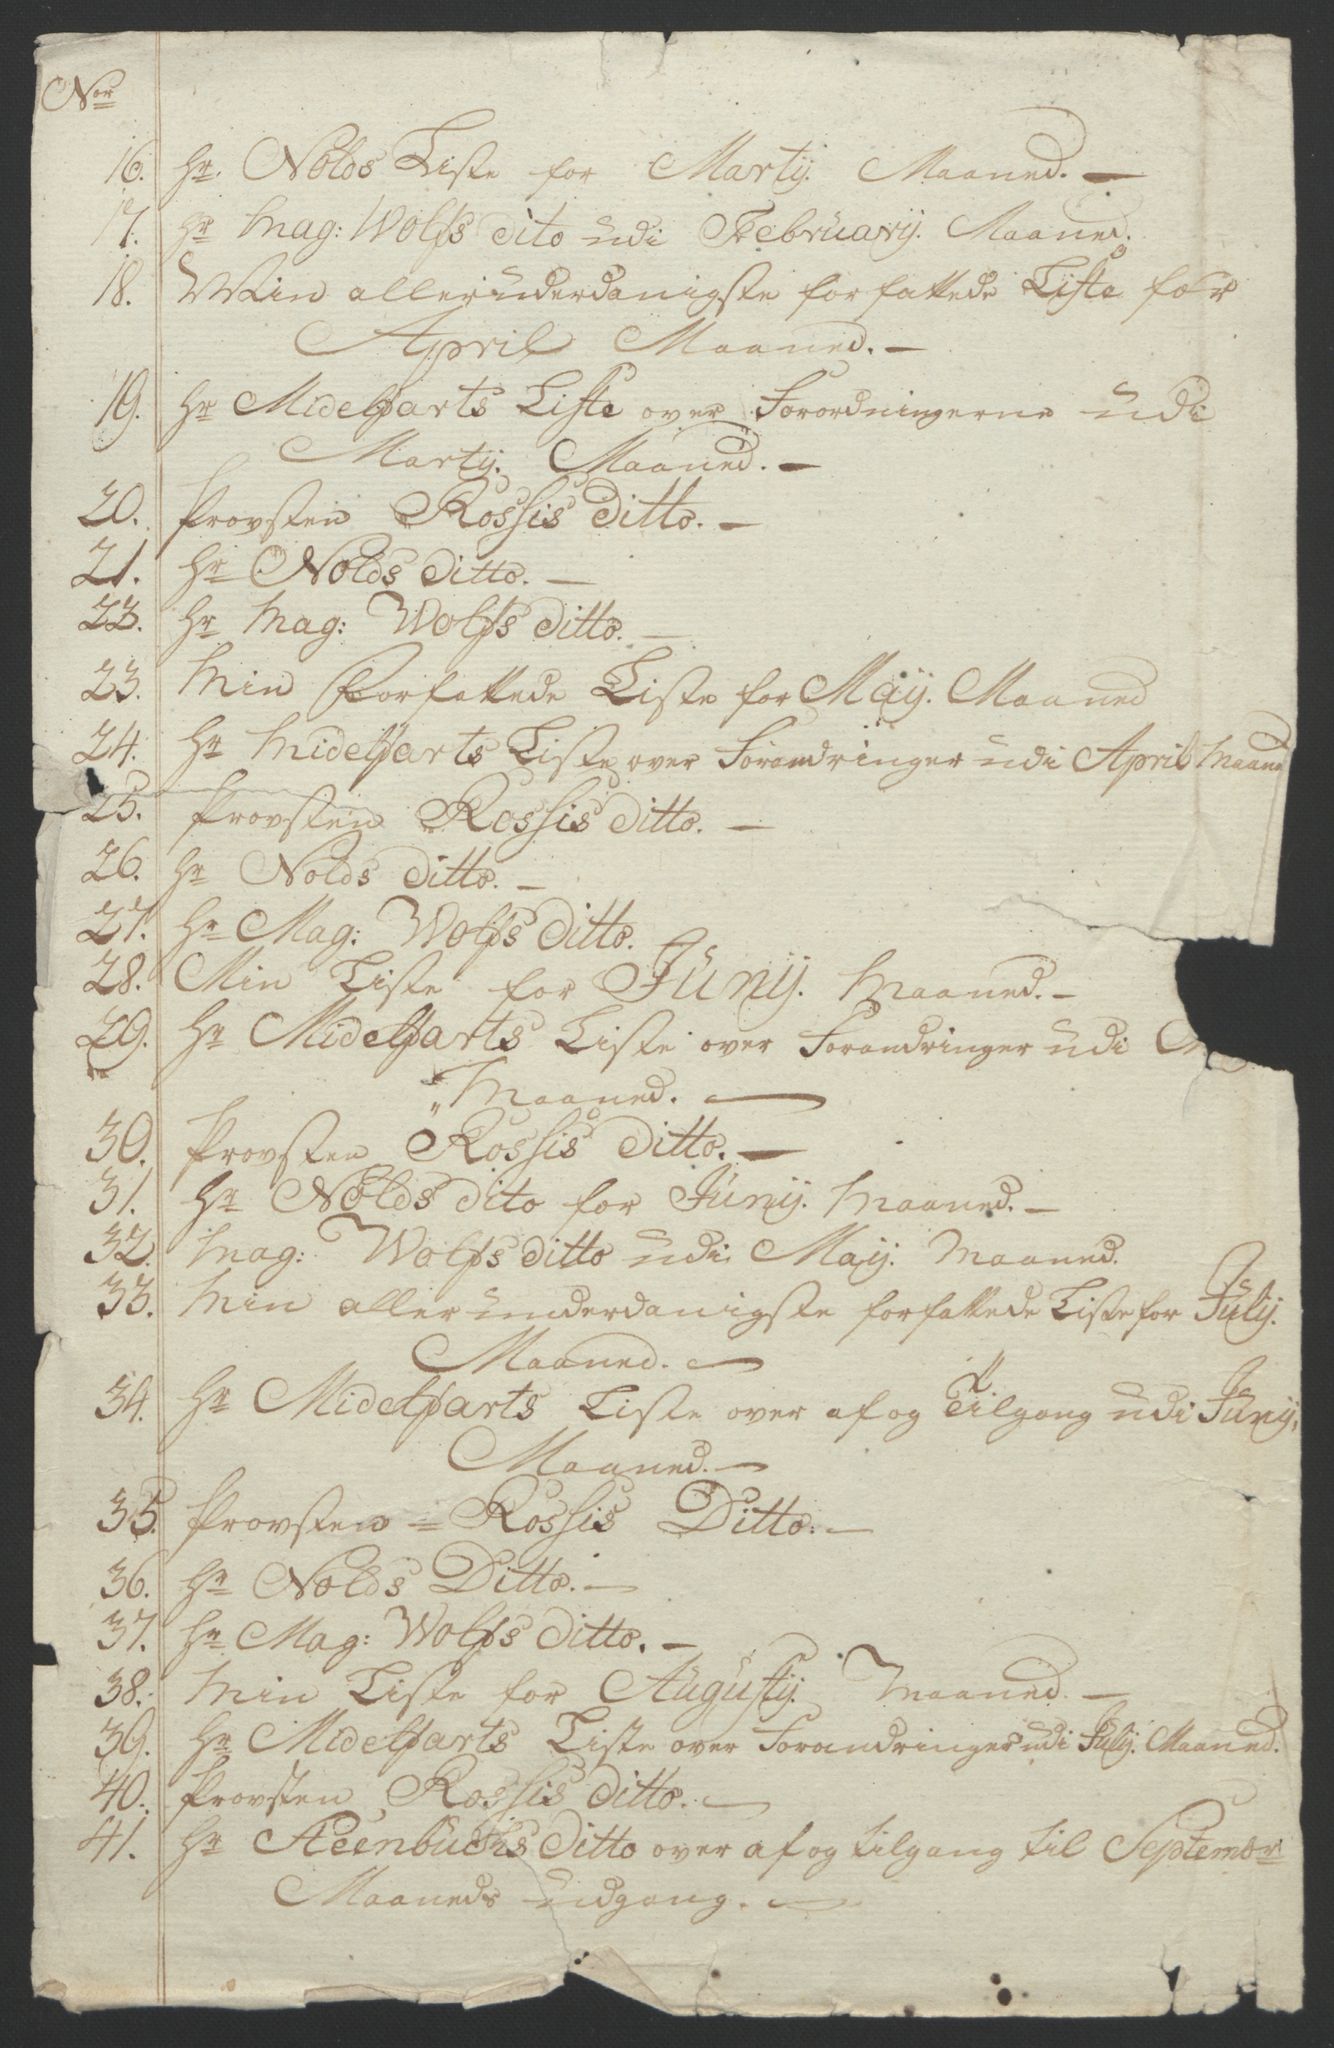 Nor
16. Hr. Nolds Liste for Marty. Maaned. —
17. Hr Mag: Wolfs dito udi February. Maaned.
18. Min allerunderdanigste forfattede Liste for
April Maaned. —
19. Hr Midelfarts Liste over Forordningerne udi
Marty. Maaned. —
20. Provsten Rossis Ditto. —
21. Hr Nolds ditto. —
22. Hr Mag: Wolfs ditto. —
23. Min Forfattede Liste for May. Maaned
24. Hr Midelfarts Liste over Forandringer udi April Maaned
25. Provsten Rossis ditto. —
26. Hr Nolds ditto. —
27. Hr Mag: Wolfs Ditto.
28. Min Liste for Juny. Maaned. —
29. Hr Midelfarts Liste over Forandringer udi
Maaned. —
30. Provsten Rossis Ditto. —
31. Hr Nolds dito for Juny. Maaned. —
32. Mag: Wolfs ditto udi May. Maaned.
33. Min allerunderdanigste forfattede Liste for July.
Maaned. —
34. Hr Midelfarts Liste over af og Tilgang udi Juny.
Maaned. —
35. Provsten = Rossis Ditto. —
36. Hr Nolds Ditto. —
37. Hr Mag: Wolfs ditto. —
38. Min Liste for Augusty. Maaned. —
39. Hr Midelfarts Liste over Forandringer udi July. Maaned.
40. Provsten Rossis ditto. —
41. Hr Steenbuchs Ditto over af og tilgang til Septembr
Maaneds udgang. —